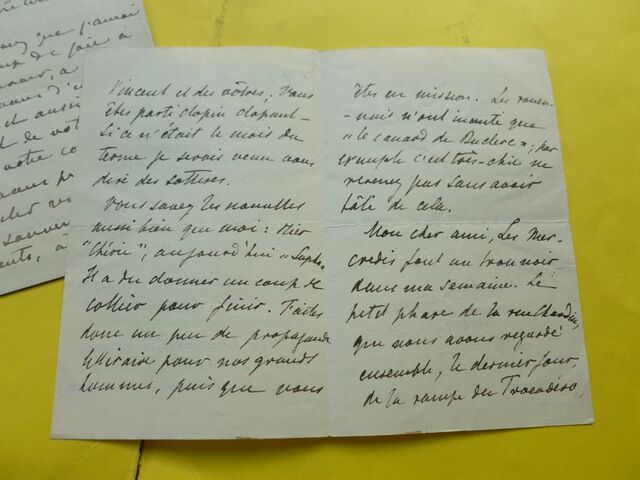 vez que j'aurai
up de joie à
à
et aussi
t de vot
votre co
souven
ents, à
Vincent et des vôtres. Vous
êtes parti clopin clopant –
Si ce n'était le mois du
terme je serais venu vous
dire des sottises.
Vous savez les nouvelles
aussi bien que moi : Hier
"Chérie", aujourd'hui "Sapho".
Il a du donner un coup de
collier pour finir. Faites
donc un peu de propagande
littéraire pour nos grands
hommes, puis que vous
êtes en mission. Les rouen-
-nais n'ont inventé que
« le canard de Duclerc » ; par
exemple c'est très-chic ne
revenez pas sans avoir
tâté de cela.
Mon cher ami, Les Mer-
credis font un trou noir
dans ma semaine. Le
petit phare de la rue
que nous avons regardé
ensemble, le dernier jour,
de la rampe du Trocadéro,